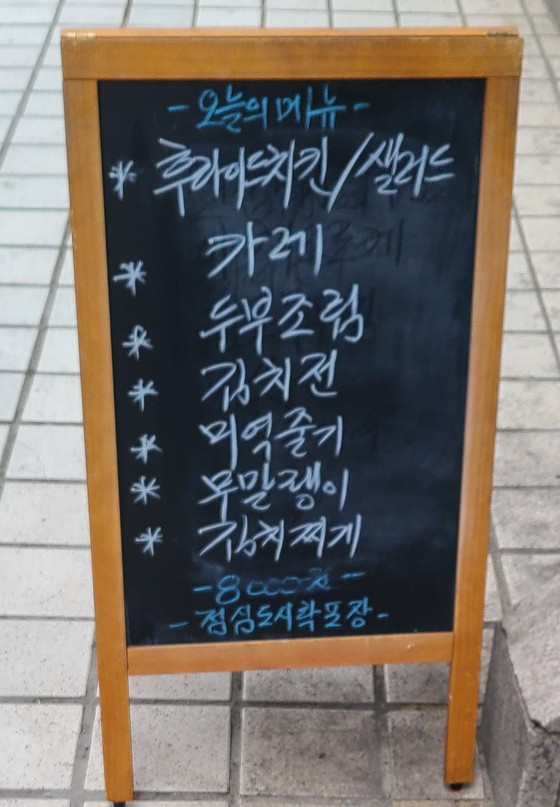 -오늘의 메뉴-
* 후라이드치킨/샐러드
* 카레
* 두부조림
* 김치전
* 미역줄기
* 무말랭이
* 김치찌게
-8000원-
-점심도시락포장-